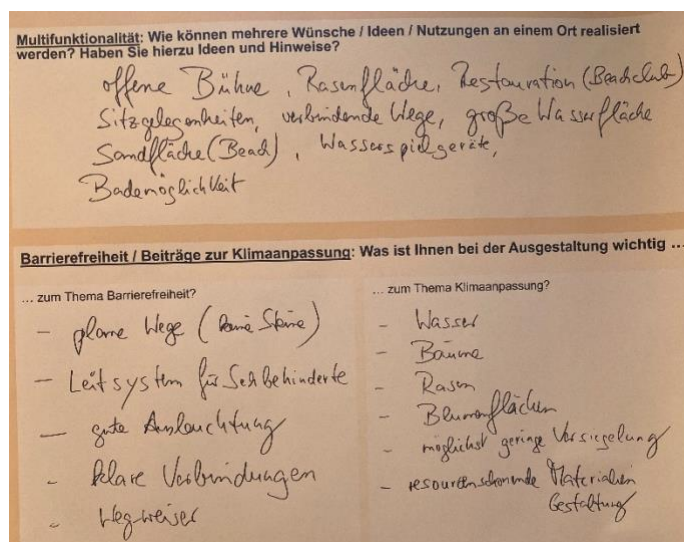 Multifunktionalität: Wie können mehrere Wünsche / Ideen / Nutzungen an einem Ort realisiert
werden? Haben Sie hierzu Ideen und Hinweise?
offene Bühne, Rasenfläche, Restauration (Beachclub)
Sitzgelegenheiten, verbindende Wege, große Wasserfläche
Sandfläche (Beach), Wasserspielgeräte,
Bademöglichkeit
Barrierefreiheit / Beiträge zur Klimaanpassung: Was ist Ihnen bei der Ausgestaltung wichtig ...
... zum Thema Barrierefreiheit?
- plane Wege (keine Steine)
- Leitsystem für Sehbehinderte
- gute Ausleuchtung
- klare Verbindungen
- Wegweiser
... zum Thema Klimaanpassung?
- Wasser
- Bäume
- Rasen
- Blumenflächen
- möglichst geringe Versiegelung
- resourcenschonende Materialien
Gestaltung